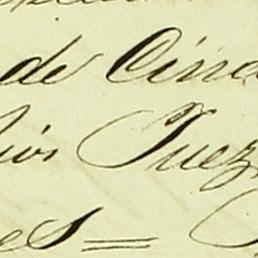 de Cinc
ios Juez
es =